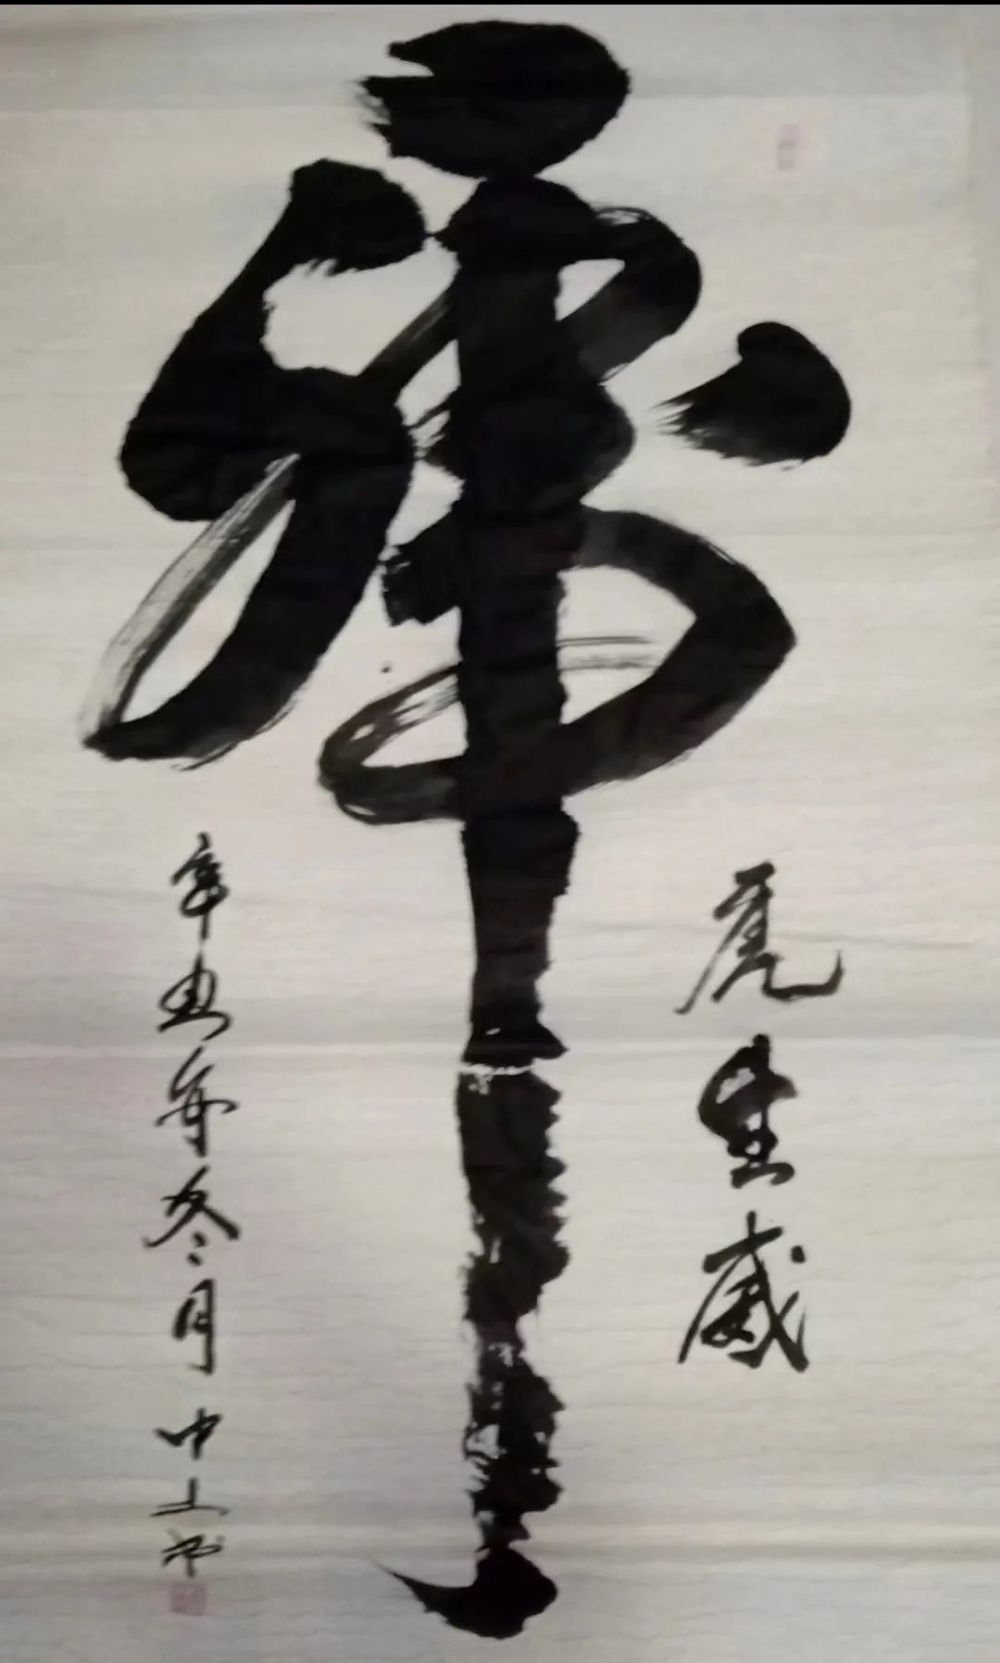 虎
虎生威
辛丑年冬月 中上书